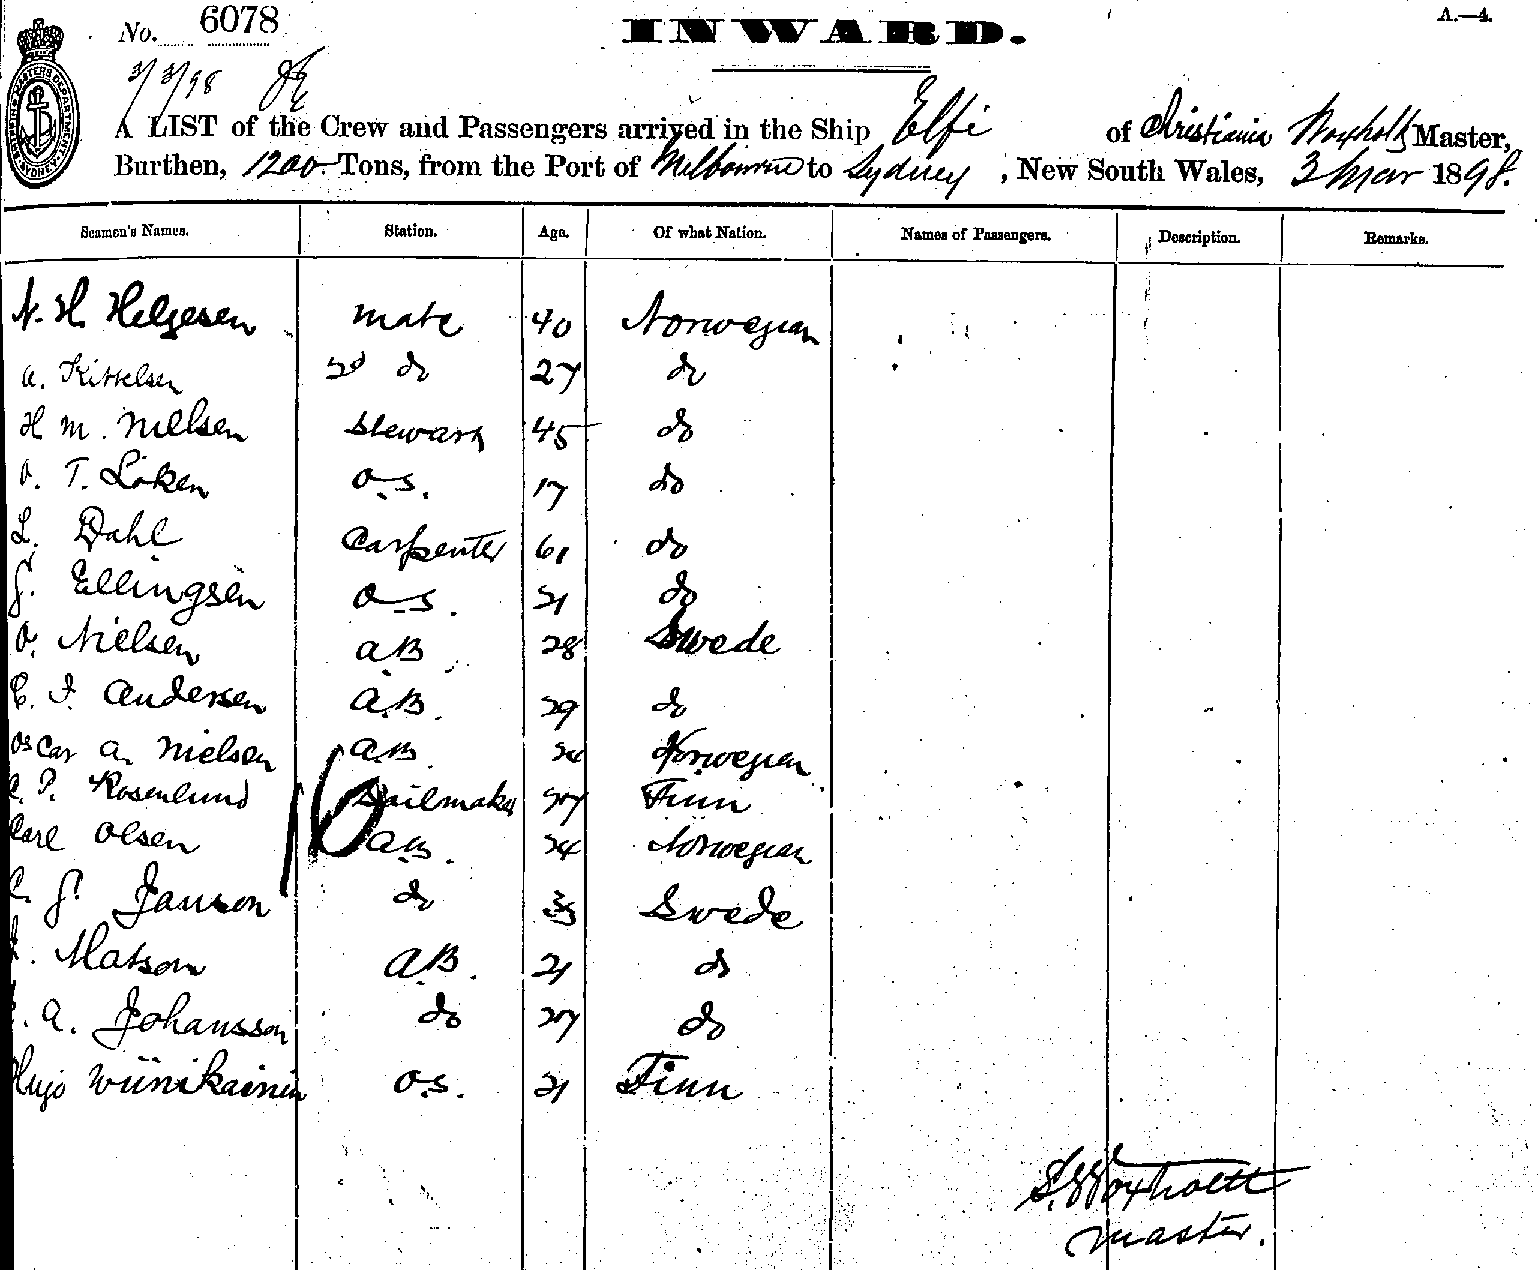 No. 6078
INWARD.
A.—4.
3/3/98
A LIST of the Crew and Passengers arrived in the Ship Elfi of Christiania Woxholtt Master,
Burthen, 1200 Tons, from the Port of Melbourne to Sydney, New South Wales, 3 Mar 1898.
Seamen's Names. Station. Age. Of what Nation. Names of Passengers. Description. Remarks.
N. H. Helgesen mate 40 Norwegian
A. Kittelsen 2d do 27 do
H M. Nielsen Steward 45 do
O. T. Loken O.S. 17 do
L. Dahl Carpenter 61 do
J. Ellingsen O.S. 21 do
O. Nielsen AB 28 Swede
C. J. Andersen A.B. 29 do
Oscar A. Nielsen AB. 24 Norwegian
C. P. Rosenlund Sailmaker 27 Finn
Carl Olsen AB. 24 Norwegian
16
C. J. Janson do 33 Swede
Matson AB. 21 do
A. Johansson do 27 do
Hujo Wiinikainin O.S. 21 Finn
S. Woxholtt
Master.